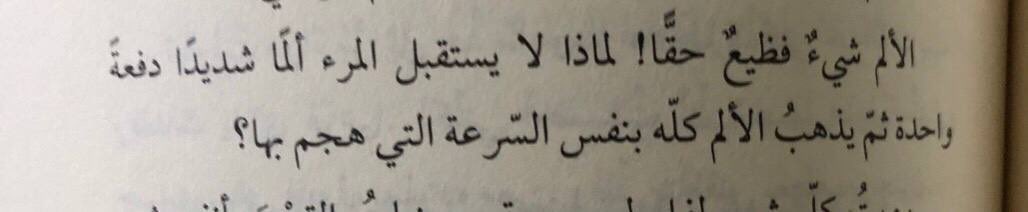 الألم شيءٌ فظيعٌ حقًّا! لماذا لا يستقبل المرء ألمًا شديدًا دفعةً
واحدة ثمّ يذهبُ الألم كلّه بنفس السّرعة التي هجم بها؟